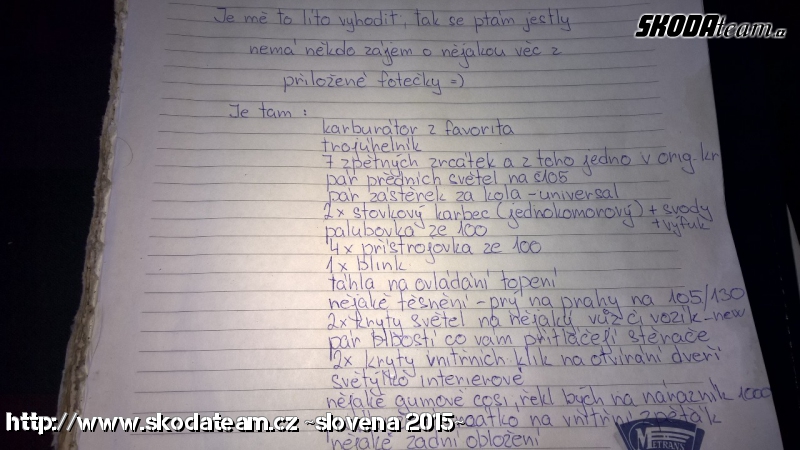 Je mě to líto vyhodit, tak se ptám jestly
nemá někdo zájem o nějakou věc z
přiložené fotečky =)
Je tam :
karburátor z favorita
trojúhelník
7 zpětných zrcátek a z toho jedno v orig. kr
pár předních světel na š105
pár zástěrek za kola - universal
2x stovkový karbec (jednokomorový) + svody
+ výfuk
palubovka ze 100
4x přístrojovka ze 100
1x blink
táhla na ovládání topení
nějaké těsnění - prý na prahy na 105/130
2x kryty světel na nějaký vůz či vozík - new
pár blbostí co vám přitláčeli stěrače
2x kryty vnitřních klik na otvírání dveří
světýlko interierové
nějaké gumové cosi, řekl bych na nárazník 1000
na vnitřní zpěťák
nějaké zadní obložení
SKODAteam.cz
http://www.skodateam.cz ~slovena 2015~
METRANS